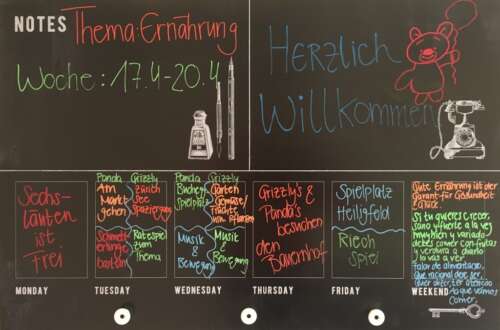 NOTES Thema: Ernährung
Woche: 17.4-20.4
Herzlich
Willkommen
Sechs-
läuten
ist
frei
MONDAY
Panda
Am
Markt
gehen
Grizzly
Zürich
See
Spaziergang
Schmett-
erlinge
basteln
Ratespiel
zum
Thema
TUESDAY
Panda
Bücher/
Spielplatz
Grizzly
Garten
Gemüse/
Früchte
Musik
&
Bewegung
Musik
&
Bewegung
WEDNESDAY
Grizzly's &
Panda's
besuchen
den
Bauernhof
THURSDAY
Spielplatz
Heiligfeld
Riech
Spiel
FRIDAY
Gute Ernährung ist der
Garant für Gesundheit
Si tu quieres crecer,
sano y fuerte a la vez
muy bien y variado
debes comer con frutas
y verdura a diario
lo vas a ver
que racional debe ser,
lo que vamos
comer.
WEEKEND